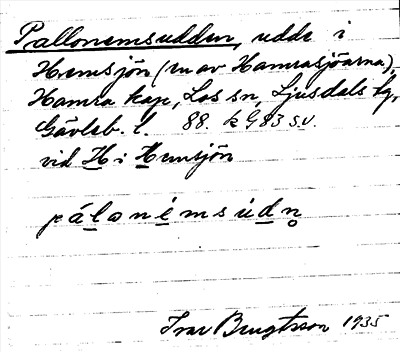 Pallonemsudden, udde i
Hemsjön (en av Hamrasjöarna),
Hamra kap, Los sn, Ljusdals tg,
Gävleb. l. 88. k G 83 s.v.
vid H i Hemsjön
pálanémsúdn̥
Ivar Bengtsson 1935